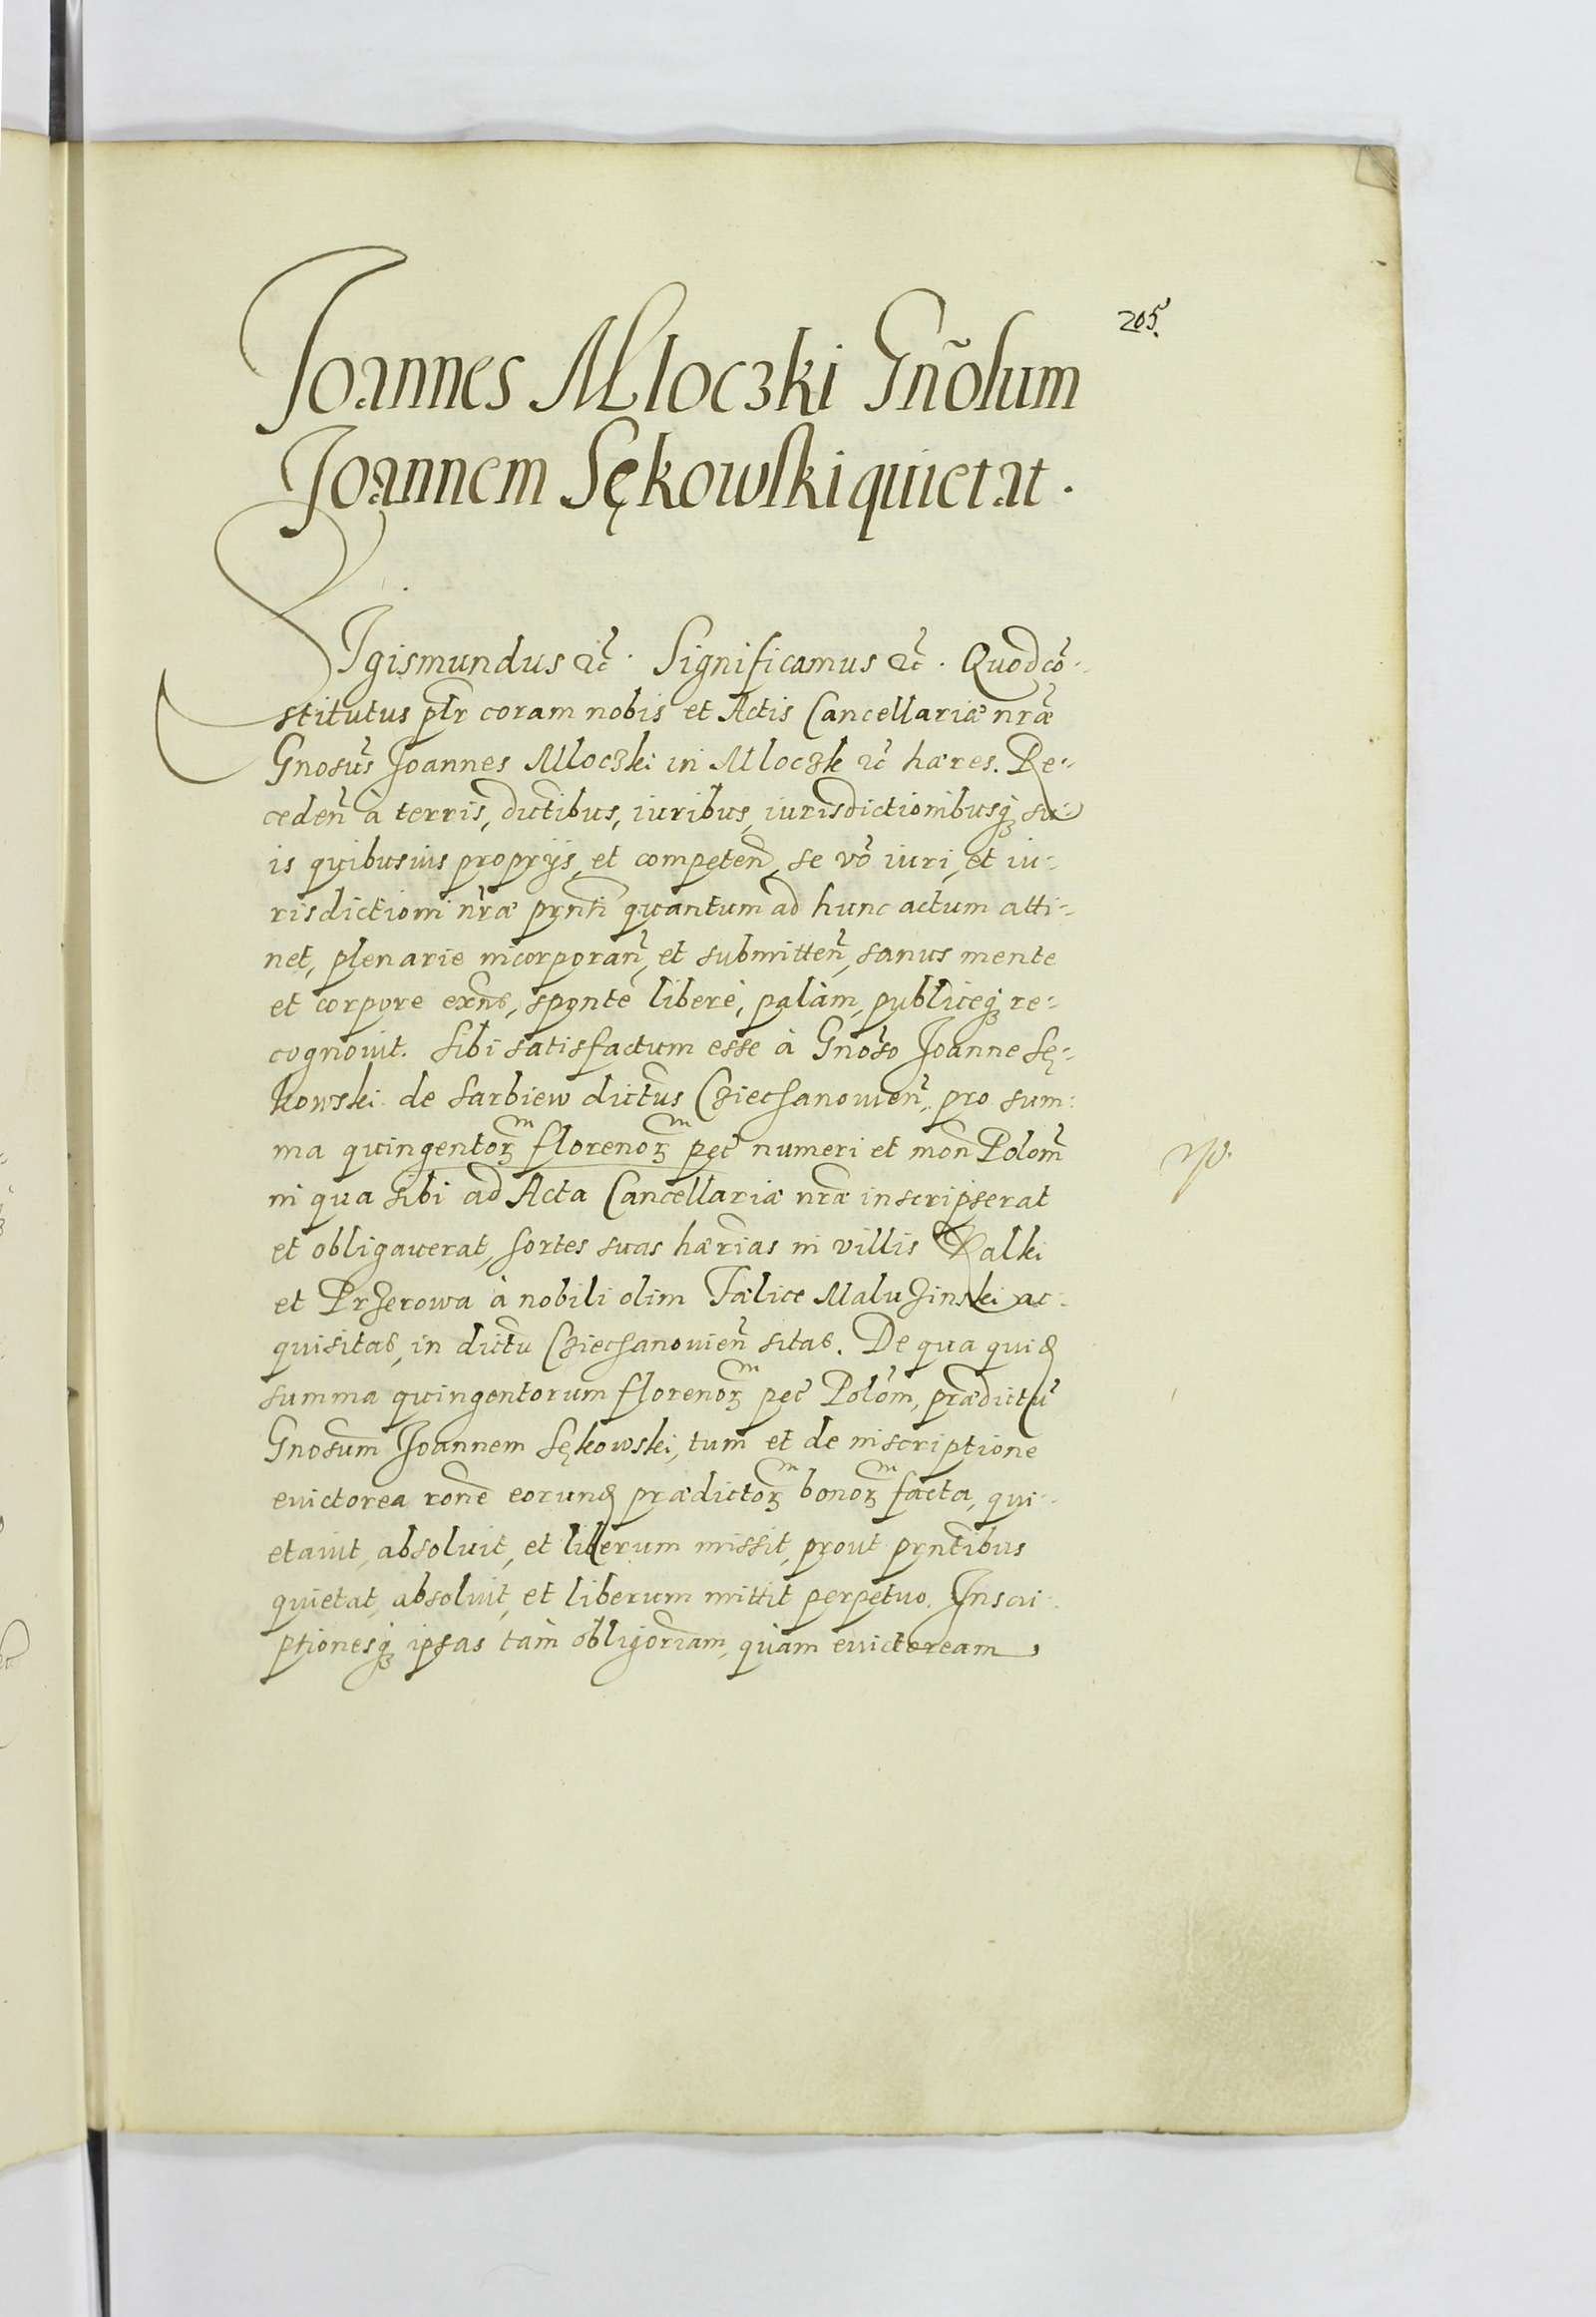 205.
Joannes Mloczki Gñosum
Joannem Sękowski quietat.
Sigismundus &c̃. Significamus &c̃. Quod cõ-
stitutus pl̃r coram nobis et Actis Cancellariæ nr̃æ
Gnosus̃ Joannes Mloczki in Mloczk &c̃ hæres. Re-
cedeñ à terris, dictibus, iuribus, iurisdictionibusq̃ su-
is quibusuis proprijs, et competeñ, se võ iuri, et iu-
risdictioni nr̃æ pñti quantum ad hunc actum atti-
net, plenarie incorporañ, et submitteñ, sanus mente
et corpore exñs, sponte libere, palàm, publiceq̃ re-
cognovit. Sibi satisfactum esse à Gnos̃o Joanne Sę-
kowski de Sarbiew dict̃us Cziechanovieñ, pro sum-
ma quingentor̃m florenor̃m pec̃ numeri et moñ Poloñi
in qua sibi ad Acta Cancellariæ nr̃æ inscripserat
et obligauerat, sortes suas hær̃ias in villis Kalki
et Przerowa à nobili olim Fælice Maluzinski ac-
quisitas, in dict̃u Cziechanovieñ sitas. De qua quid̃
summa quingentorum florenor̃m pec̃ Poloñi, prædictũ
Gnosum̃ Joannem Sękowski, tum et de inscriptione
evictorea roñe eorund̃ prædictor̃m bonor̃m facta, qui-
etavit, absolvit, et liberum missit, prout pñtibus
quietat, absoluit, et liberum mittit perpetuo. Inscri-
ptionesq̃ ipsas tàm oblig̃oriam, quam evictoream